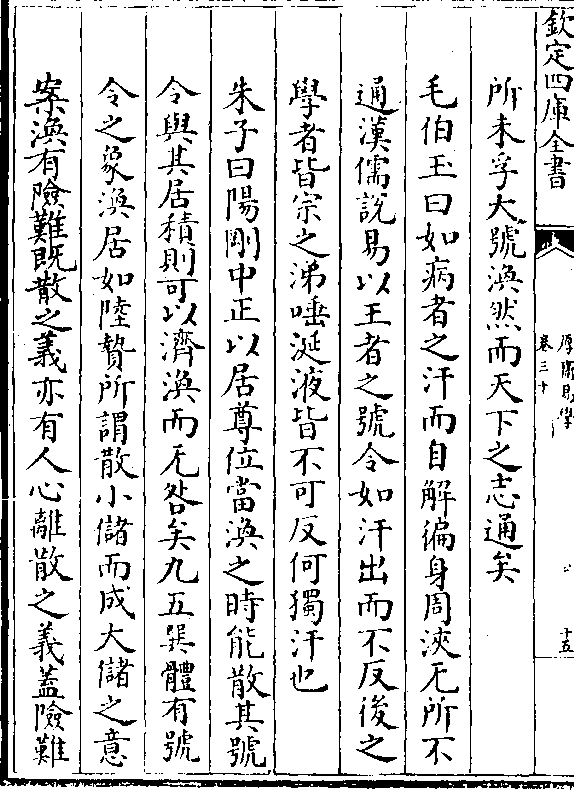 欽定四庫全書
厚齋易學
卷三十
十五
所未孚大號渙然而天下之志通矣
毛伯玉曰如病者之汗而自解徧身周浹无所不
通漢儒說易以王者之號令如汗出而不反後之
學者皆宗之涕唾涎液皆不可反何獨汗也
朱子曰陽剛中正以居尊位當渙之時能散其號
令與其居積則可以濟渙而无咎矣九五巽體有號
令之象渙居如陸贄所謂散小儲而成大儲之意
案渙有險難既散之義亦有人心離散之義蓋險難